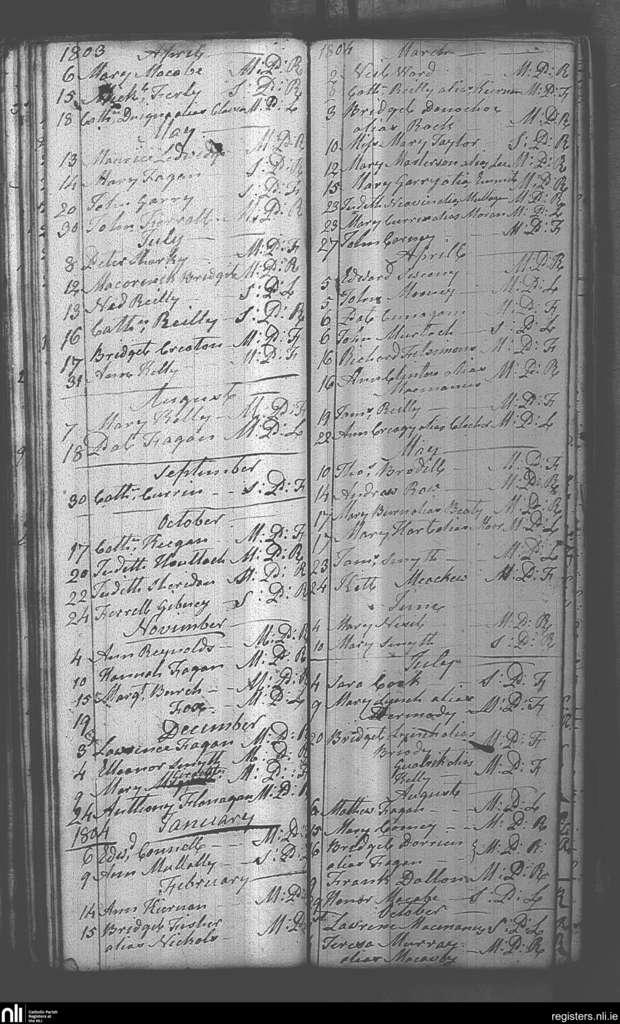 1803 April
6 Mary Macabe M:D:R
15 Ferly S:D:R
18 Cath: alias M:D:L
May
13 Maurice Ledwidge M:D:R
14 Mary Fagan S:D:R
20 John Garry S:D:F
30 John Farrell M:D:R
July
8 Peter Sharky M:D:F
12 Macormick Bridget M:D:R
13 Ned Reilly S:D:L
16 Cathn Reilly S:D:R
17 Bridget Creaton M:D:F
31 Ann Kelly M:D:F
August
7 Mary Kelly M:D:F
18 Pat Fagan M:D:L
September
30 Cath: Currin S:D:F
October
17 Cath: Keegan M:D:F
20 Judith M:D:R
22 Judith Sheridan M:D:R
24 Ferrell Gibney S:D:R
November
4 Ann Reynolds M:D:R
10 Hannah Fagan M:D:R
15 Margt Burch M:D:R
19 Fox M:D:L
December
3 Lawrence Fagan M:D:R
4 Elleonor Smyth M:D:R
9 Mary M:D:F
24 Anthony Flanagan M:D:
1804 January
6 Edwd Connell M:D:
9 Ann Mullally S:D:L
February
14 Ann Kiernan M:D:
15 Bridget Fisher M:D:
alias Nichols
1804 March
2 Neil Ward M:D:R
Cath: Reilly alias Kiernan M:D:F
3 Bridget Donochoe
alias Rock M:D:R
10 Miss Mary Taylor S:D:R
12 Mary Masterson alias Lee M:D:R
15 Mary Garry alias M:D:R
23 Judith alias M:D:R
23 Mary Currin alias Moran M:D:L
27 John M:D:F
Aprill
5 Edward Sweeny M:D:R
5 John Mooney M:D:L
6 Pat Cunagan M:D:F
6 John Murtach S:D:L
16 Richard Fitsimons M:D:F
16 Ann Clinton alias
Macmanus M:D:R
19 James Reilly M:D:F
22 Ann Creagy alias M:D:L
May
10 Thos Brodell M:D:F
14 Andrew Row M:D:R
17 Mary Burn alias Beaty M:D:R
17 Mary Hart alias M:D:L
23 Jams Smyth M:D:L
24 Kett Meachew M:D:F
June
4 Mary M:D:R
10 Mary Smyth S:D:R
July
4 Sara Cook S:D:F
9 Mary Lynch alias
M:D:F
20 Bridget alias
Briody M:D:F
alias
Kelly M:D:F
August
6 Mathew Fagan M:D:L
15 Mary Conney M:D:R
16 Bridget
alias Fagan M:D:R
9 Frank Dalton M:D:R
29 Honor Macabe S:D:L
October
Lawrence Macmanus S:D:L
Teresa Murray M:D:R
alias
nli
Catholic Parish
Registers at
the NLI
registers.nli.ie